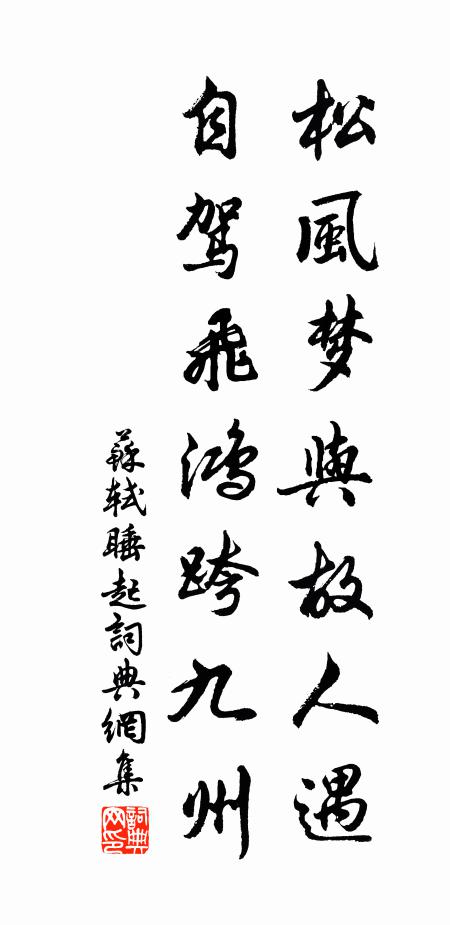 松風梦與故人遇
自駕飛鴻跨九州
蘇軾睡起詞典網集
詞典网印